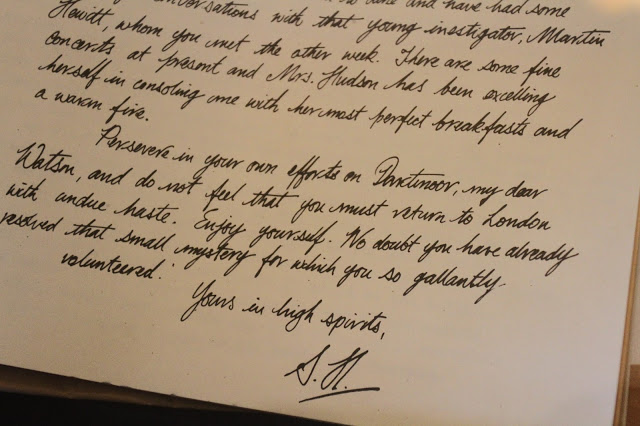 conversations with that young investigator, Martin
Hewitt, whom you met the other week. There are some fine
concerts at present and Mrs. Hudson has been excelling
herself in consoling me with her most perfect breakfasts and
a warm fire.
Persevere in your own efforts on Dartmoor, my dear
Watson, and do not feel that you must return to London
with undue haste. Enjoy yourself. No doubt you have already
resolved that small mystery for which you so gallantly
volunteered.
Yours in high spirits,
S. H.